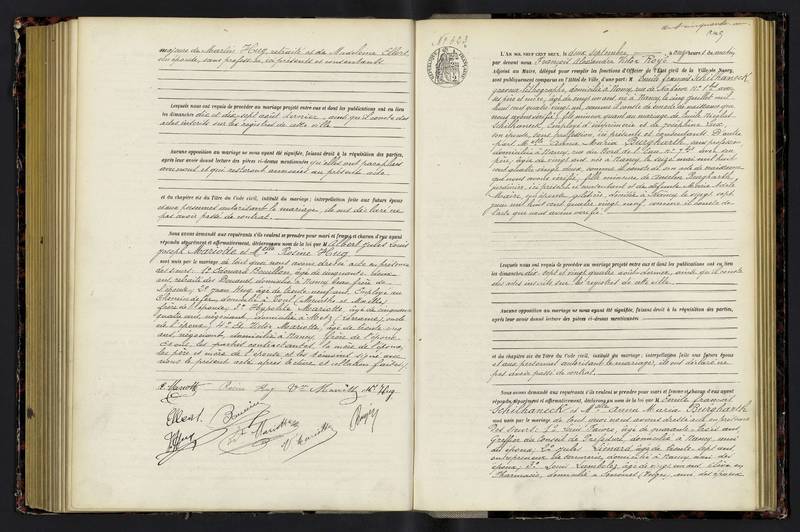 majeure de Martin Hug, retraité et de Madeleine Ellert,
son épouse, sans profession, ci présents et consentants
Lesquels nous ont requis de procéder au mariage projeté entre eux et dont les publications ont eu lieu
les dimanches dix et dix sept août dernier, ainsi qu'il conste des
actes inscrits sur les registres de cette ville
Aucune opposition au mariage ne nous ayant été signifiée, faisant droit à la réquisition des parties,
après leur avoir donné lecture des pièces ci-dessus mentionnées qu'elles ont paraphées
avec nous et qui resteront annexées au présent acte
et du chapitre six du Titre du Code civil, intitulé du mariage; interpellation faite aux futurs époux
et aux personnes autorisant le mariage, ils ont déclaré ne
pas avoir passé de contrat.
Nous avons demandé aux requérants s'ils veulent se prendre pour mari et femme et chacun d'eux ayant
répondu séparément et affirmativement, déclarons au nom de la loi que M Albert Jules Louis
Joseph Mariotte et Melle Rosine Hug
sont unis par le mariage de tout quoi nous avons dressé acte en présence
des sieurs: 1° Edouard Bouillon, âgé de cinquante deux
ans, retraité des Douanes, domicilié à Nancy, beau frère de
l'épouse; 2° Jean Hug, âgé de trente neuf ans, Employé au
Chemin de fer, domicilié à Toul (Meurthe et Moselle)
frère de l'épouse; 3° Hypolite Mariotte, âgé de cinquante
quatre ans, négociant, domicilié à Metz (Lorraine), oncle
de l'époux; 4° et Victor Mariotte, âgé de trente cinq
ans, négociant, domicilié à Nancy, frère de l'époux
Et ont, les parties contractantes, la mère de l'époux,
les père et mère de l'épouse et les témoins signé avec
nous le présent acte après lecture et collation faites,
A. Mariotte Rosine Hug Vve Mariotte M. Hug
V. Mariotte
N° 603
L'AN MIL NEUF CENT DEUX, le deux septembre, à onze heures du matin,
par devant nous François Alexandre Victor Royé
Adjoint au Maire, délégué pour remplir les fonctions d'Officier de l'État civil de la Ville de Nancy,
sont publiquement comparus en l'Hôtel de Ville, d'une part: M. Emile François Schilhaneck
graveur-lithographe, domicilié à Nancy, rue de
ses père et mère, âgé de vingt un ans, né à Nancy, le cinq juillet mil
huit cent quatre vingt un, comme il conste de son acte de naissance que
nous avons vérifié; fils mineur quant au mariage de Emile Nicolas
Schilhaneck, Employé d'imprimerie et de Joséphine
son épouse, sans profession, ici présents et consentants. D'autre
part Melle Anna Maria Burgharth, sans profession
domiciliée à Nancy, rue avec son
père, âgée de vingt ans, née à Nancy, le vingt mai mil huit
cent quatre vingt deux, comme il conste de son acte de naissance
que nous avons vérifié; fille mineure de Anselm Burgharth,
jardinier, ici présent et consentant et de défunte Maria
son épouse, décédée à Nancy, le vingt sept
juin mil huit cent quatre vingt neuf, comme il conste de
l'acte que nous avons vérifié.
Lesquels nous ont requis de procéder au mariage projeté entre eux et dont les publications ont eu lieu
les dimanches dix sept et vingt quatre août dernier, ainsi qu'il conste
des actes inscrits sur les registres de cette ville.
Aucune opposition au mariage ne nous ayant été signifiée, faisant droit à la réquisition des parties,
après leur avoir donné lecture des pièces ci-dessus mentionnées
et du chapitre six du Titre du Code civil, intitulé du mariage; interpellation faite aux futurs époux
et aux personnes autorisant le mariage, ils ont déclaré ne
pas avoir passé de contrat.
Nous avons demandé aux requérants s'ils veulent se prendre pour mari et femme et chacun d'eux ayant
répondu séparément et affirmativement, déclarons au nom de la loi que M Emile François
Schilhaneck et Melle Anna Maria Burgharth
sont unis par le mariage de tout quoi nous avons dressé acte en présence
des sieurs: 1° âgé de quarante trois ans,
Greffier au Conseil de Préfecture, domicilié à Nancy, ami
de l'époux; 2° Jules Liénard, âgé de trente sept ans,
entrepreneur de serrurerie, domicilié à Nancy, ami des
époux; 3° Louis Lambolez, âgé de vingt un ans, élève en
Pharmacie, domicilié à Senones (Vosges), ami des époux